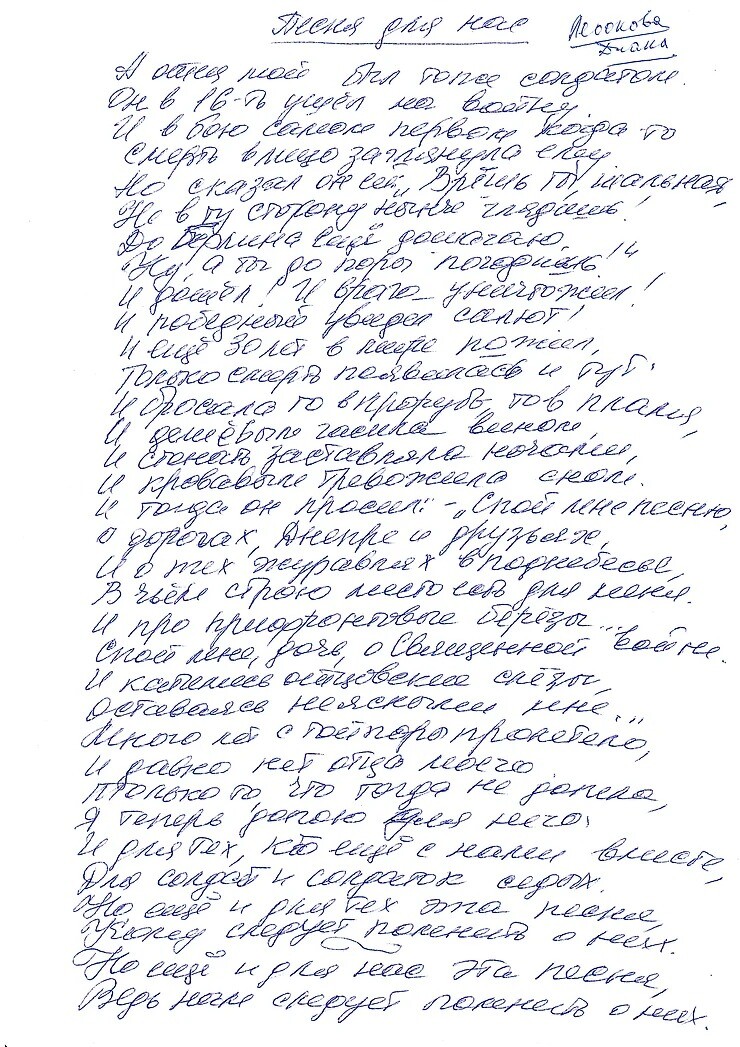 Песня для нас
Лесокова
Диана
А отец мой был тоже солдатом.
Он в 16-ть ушёл на войну
И в бою самом первом когда-то
смерть в лицо заглянула ему
Но сказал он ей „Врёшь ты, шальная,
Не в ту сторону нынче глядишь!
До Берлина ещё дошагаю,
Ну, а ты до поры погодишь!"
И дошёл! И врага уничтожил!
И победный увидел салют!
И ещё 30 лет в мире пожил,
Только смерть появилась и тут.
И бросала то в прорубь, то в пламя,
И дешёвым гасила вином,
И стонать заставляла ночами,
И кровавым тревожила сном.
И тогда он просил: - „Спой мне песню,
о дорогах, Днепре и друзьях,
И о тех журавлях в поднебесье,
В чьём строю место есть для меня.
И про прифронтовые берёзы...
Спой мне, дочь, о Священной войне.
И катились отцовские слёзы,
оставаясь неясными мне...
Много лет с той поры пролетело,
И давно нет отца моего
только то, что тогда не допела,
Я теперь допою для него.
И для тех, кто ещё с нами вместе,
Для солдат и солдаток седых.
Но ещё и для тех эта песня,
Кому следует помнить о них.
Но ещё и для нас эта песня,
Ведь нам следует помнить о них.